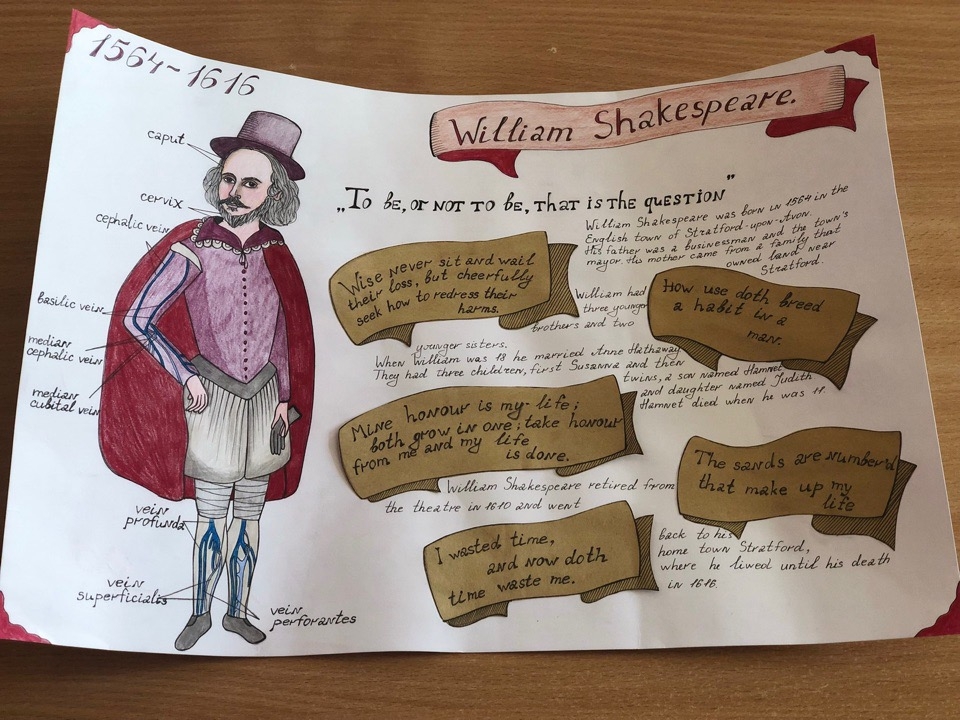 1564-1616
William Shakespeare.
„To be, or not to be, that is the question"
caput
cervix
cephalic vein
basilic vein
median
cephalic vein
median
cubital vein
vein
profunda
vein
superficialis
vein
perforantes
William Shakespeare was born in 1564 in the
English town of Stratford-upon-Avon.
His father was a businessman and the town's
mayor. His mother came from a family that
owned land near
Stratford.
Wise never sit and wail
their loss, but cheerfully
seek how to redress their
harms.
William had
three younger
brothers and two
younger sisters.
How use doth breed
a habit in a
man.
When William was 18 he married Anne Hathaway
They had three children, first Susanna and then
twins, a son named Hamnet
and daughter named Judith
Hamnet died when he was 11.
Mine honour is my life;
both grow in one; take honour
from me and my life
is done.
The sands are number'd
that make up my
life
William Shakespeare retired from
the theatre in 1610 and went
back to his
home town Stratford,
where he liwed until his death
in 1616.
I wasted time,
and now doth
time waste me.